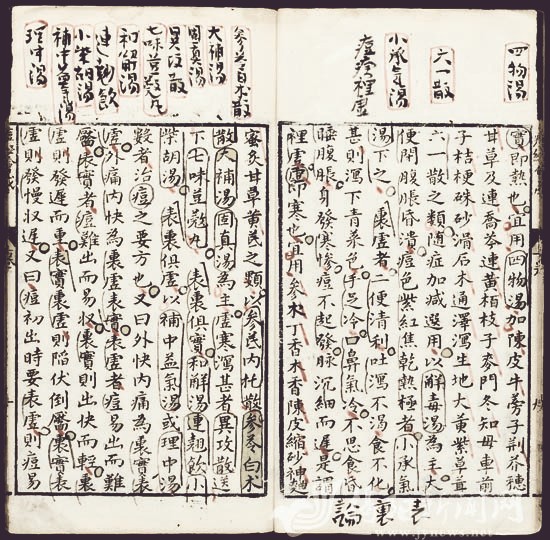 四物湯
六一散
小承气湯
痘疹裡虛
實即熱也宜用四物湯加陳皮牛蒡子荆芥穗
甘草及連喬芩連黄栢枝子麥門冬知母車前
子桔梗硃砂滑石木通澤瀉生地大黄紫草茸
六一散之類随症加减選用以解毒湯為主大
便閉腹脹昏潰痘色紫紅焦乾熱極者小承氣
湯下之 表虛者二便清利吐瀉不渴食不化
甚則瀉下青菜色手足冷口鼻氣冷不思食昏
睡腹脹身發寒惨痘不起發脉沉細而遲是謂
裡虛即寒也宜用參木香木香陳皮縮砂神麯
表裏論
參芩白木散
大補湯
固真湯
異攻散
七味荳蔻丸
和解湯
連翹飲
小柴胡湯
補中益氣湯
理中湯
蜜灸甘草黄芪之類以參芪内托散參苓白木
散大補湯固真湯為主虛寒瀉甚者異攻散送
下七味荳蔻丸 表裏俱實和解湯連翹飲小
柴胡湯 表裏俱虛以補中益氣湯或理中湯
數者治痘之要方也又曰外快内痛為裏實表
虛外痛内快為裏虛表實表虛者痘易出而難
靨表實者痘難出而易收裏實則出快而輕裏
虛則發遲而重表實裏虛則陷伏倒靨裏實表
虛則發慢收遲又曰痘初出時要表虛則痘易